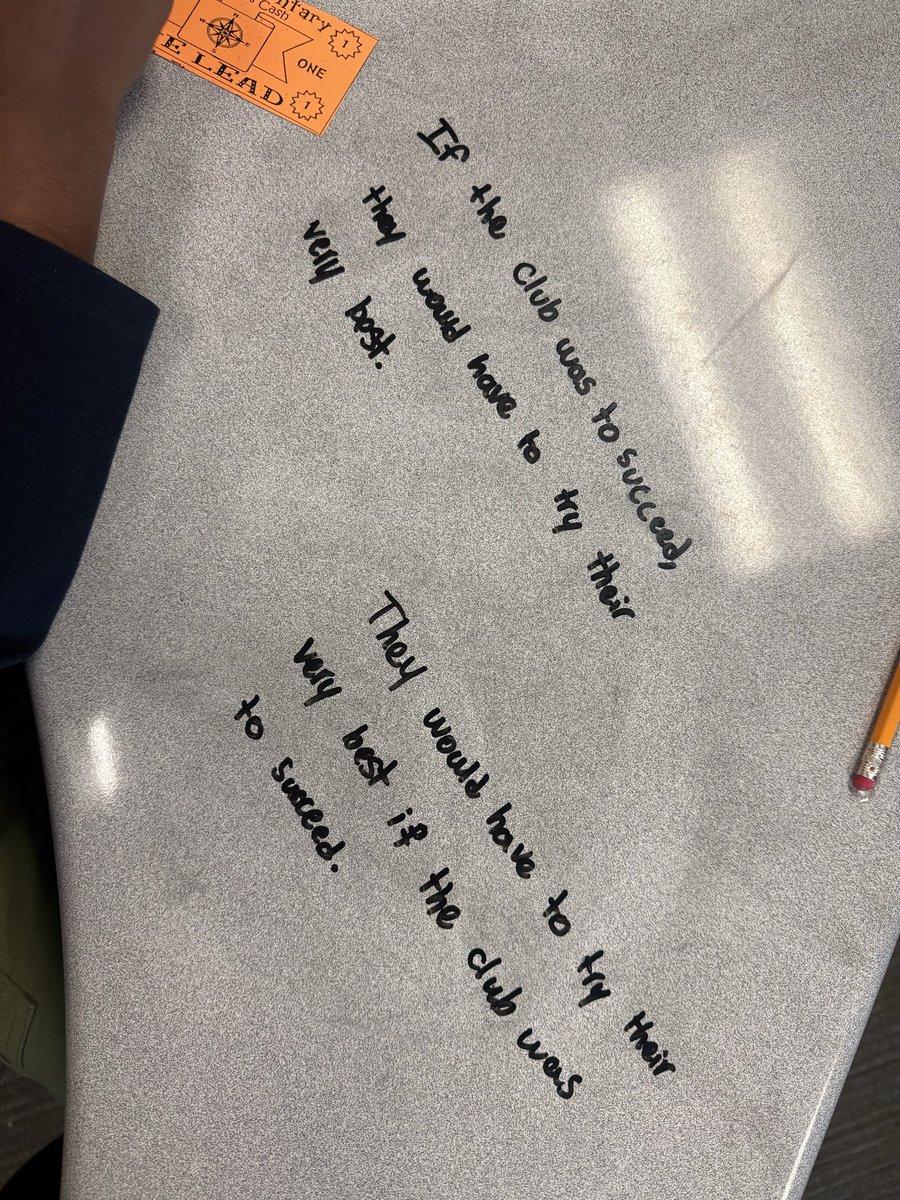 ntary
Cash
N
W E
S
1
ONE
E LEAD
1
If the club was to succeed,
they would have to try their
very best.
They would have to try their
very best if the club was
to succeed.